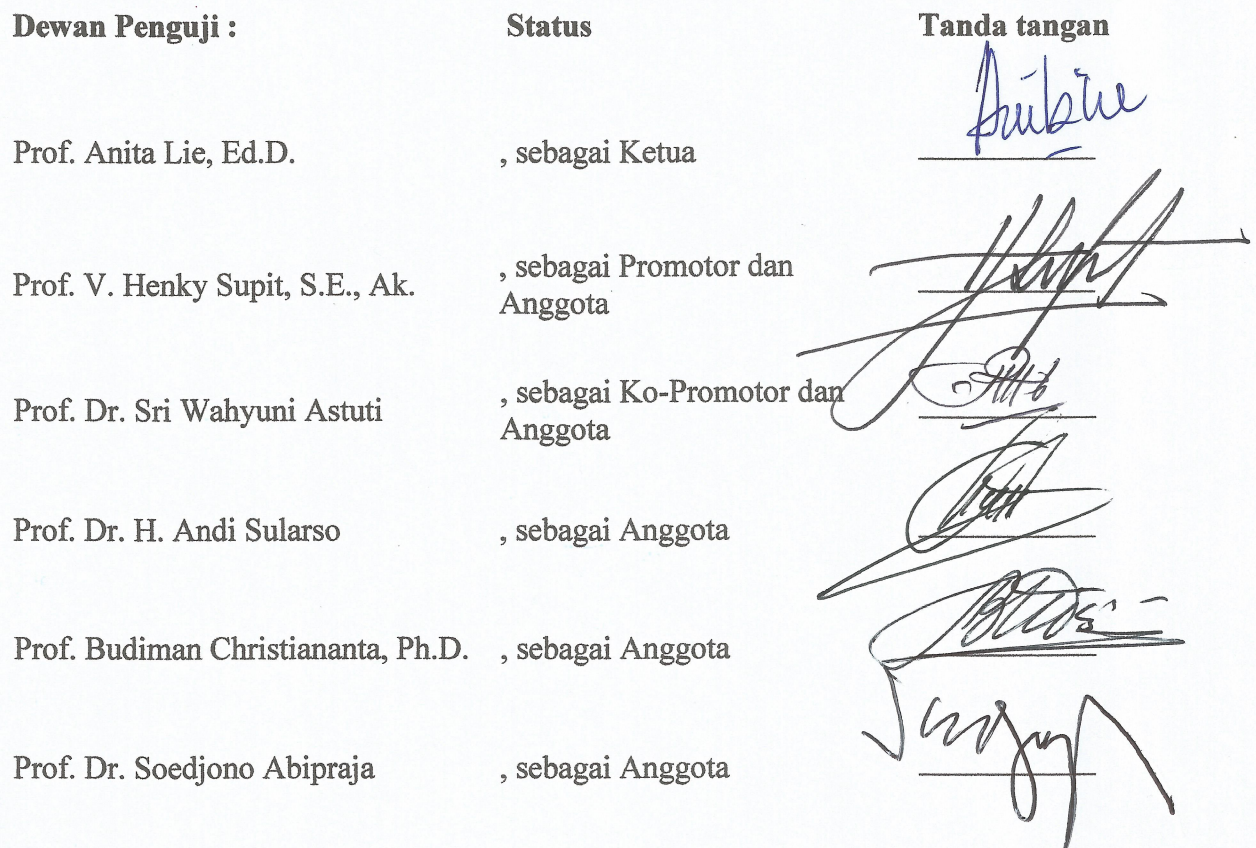 Dewan Penguji : Status Tanda tangan
Prof. Anita Lie, Ed.D. , sebagai Ketua
Prof. V. Henky Supit, S.E., Ak. , sebagai Promotor dan
Anggota
Prof. Dr. Sri Wahyuni Astuti , sebagai Ko-Promotor dan
Anggota
Prof. Dr. H. Andi Sularso , sebagai Anggota
Prof. Budiman Christiananta, Ph.D. , sebagai Anggota
Prof. Dr. Soedjono Abipraja , sebagai Anggota